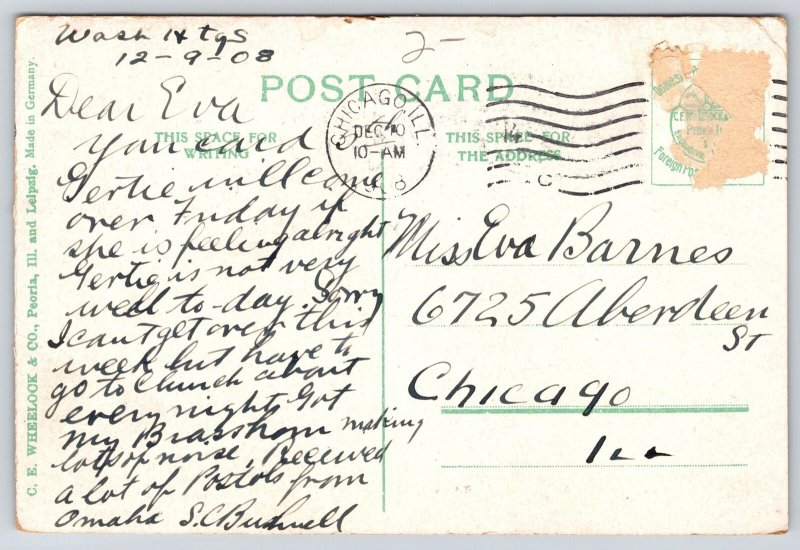 Wash Htgs
12-9-08
2-
POST CARD
THIS SPACE FOR
WRITING
THIS SPACE FOR
THE ADDRESS
CHICAGO, ILL.
DEC 10
10-AM
Dear Eva
Your card
Gertie will come
over Friday if
she is feeling alright
Gertie is not very
well to-day. Sorry
I can't get over this
week but have to
go to Church about
every night Got
my Brass horn making
lots of noise, Received
a lot of Postols from
Omaha S.C Bushnell
Miss Eva Barnes
6725 Aberdeen
St
Chicago
Ill
C. E. WHEELOCK & CO., Peoria, Ill. and Leipzig. Made in Germany.